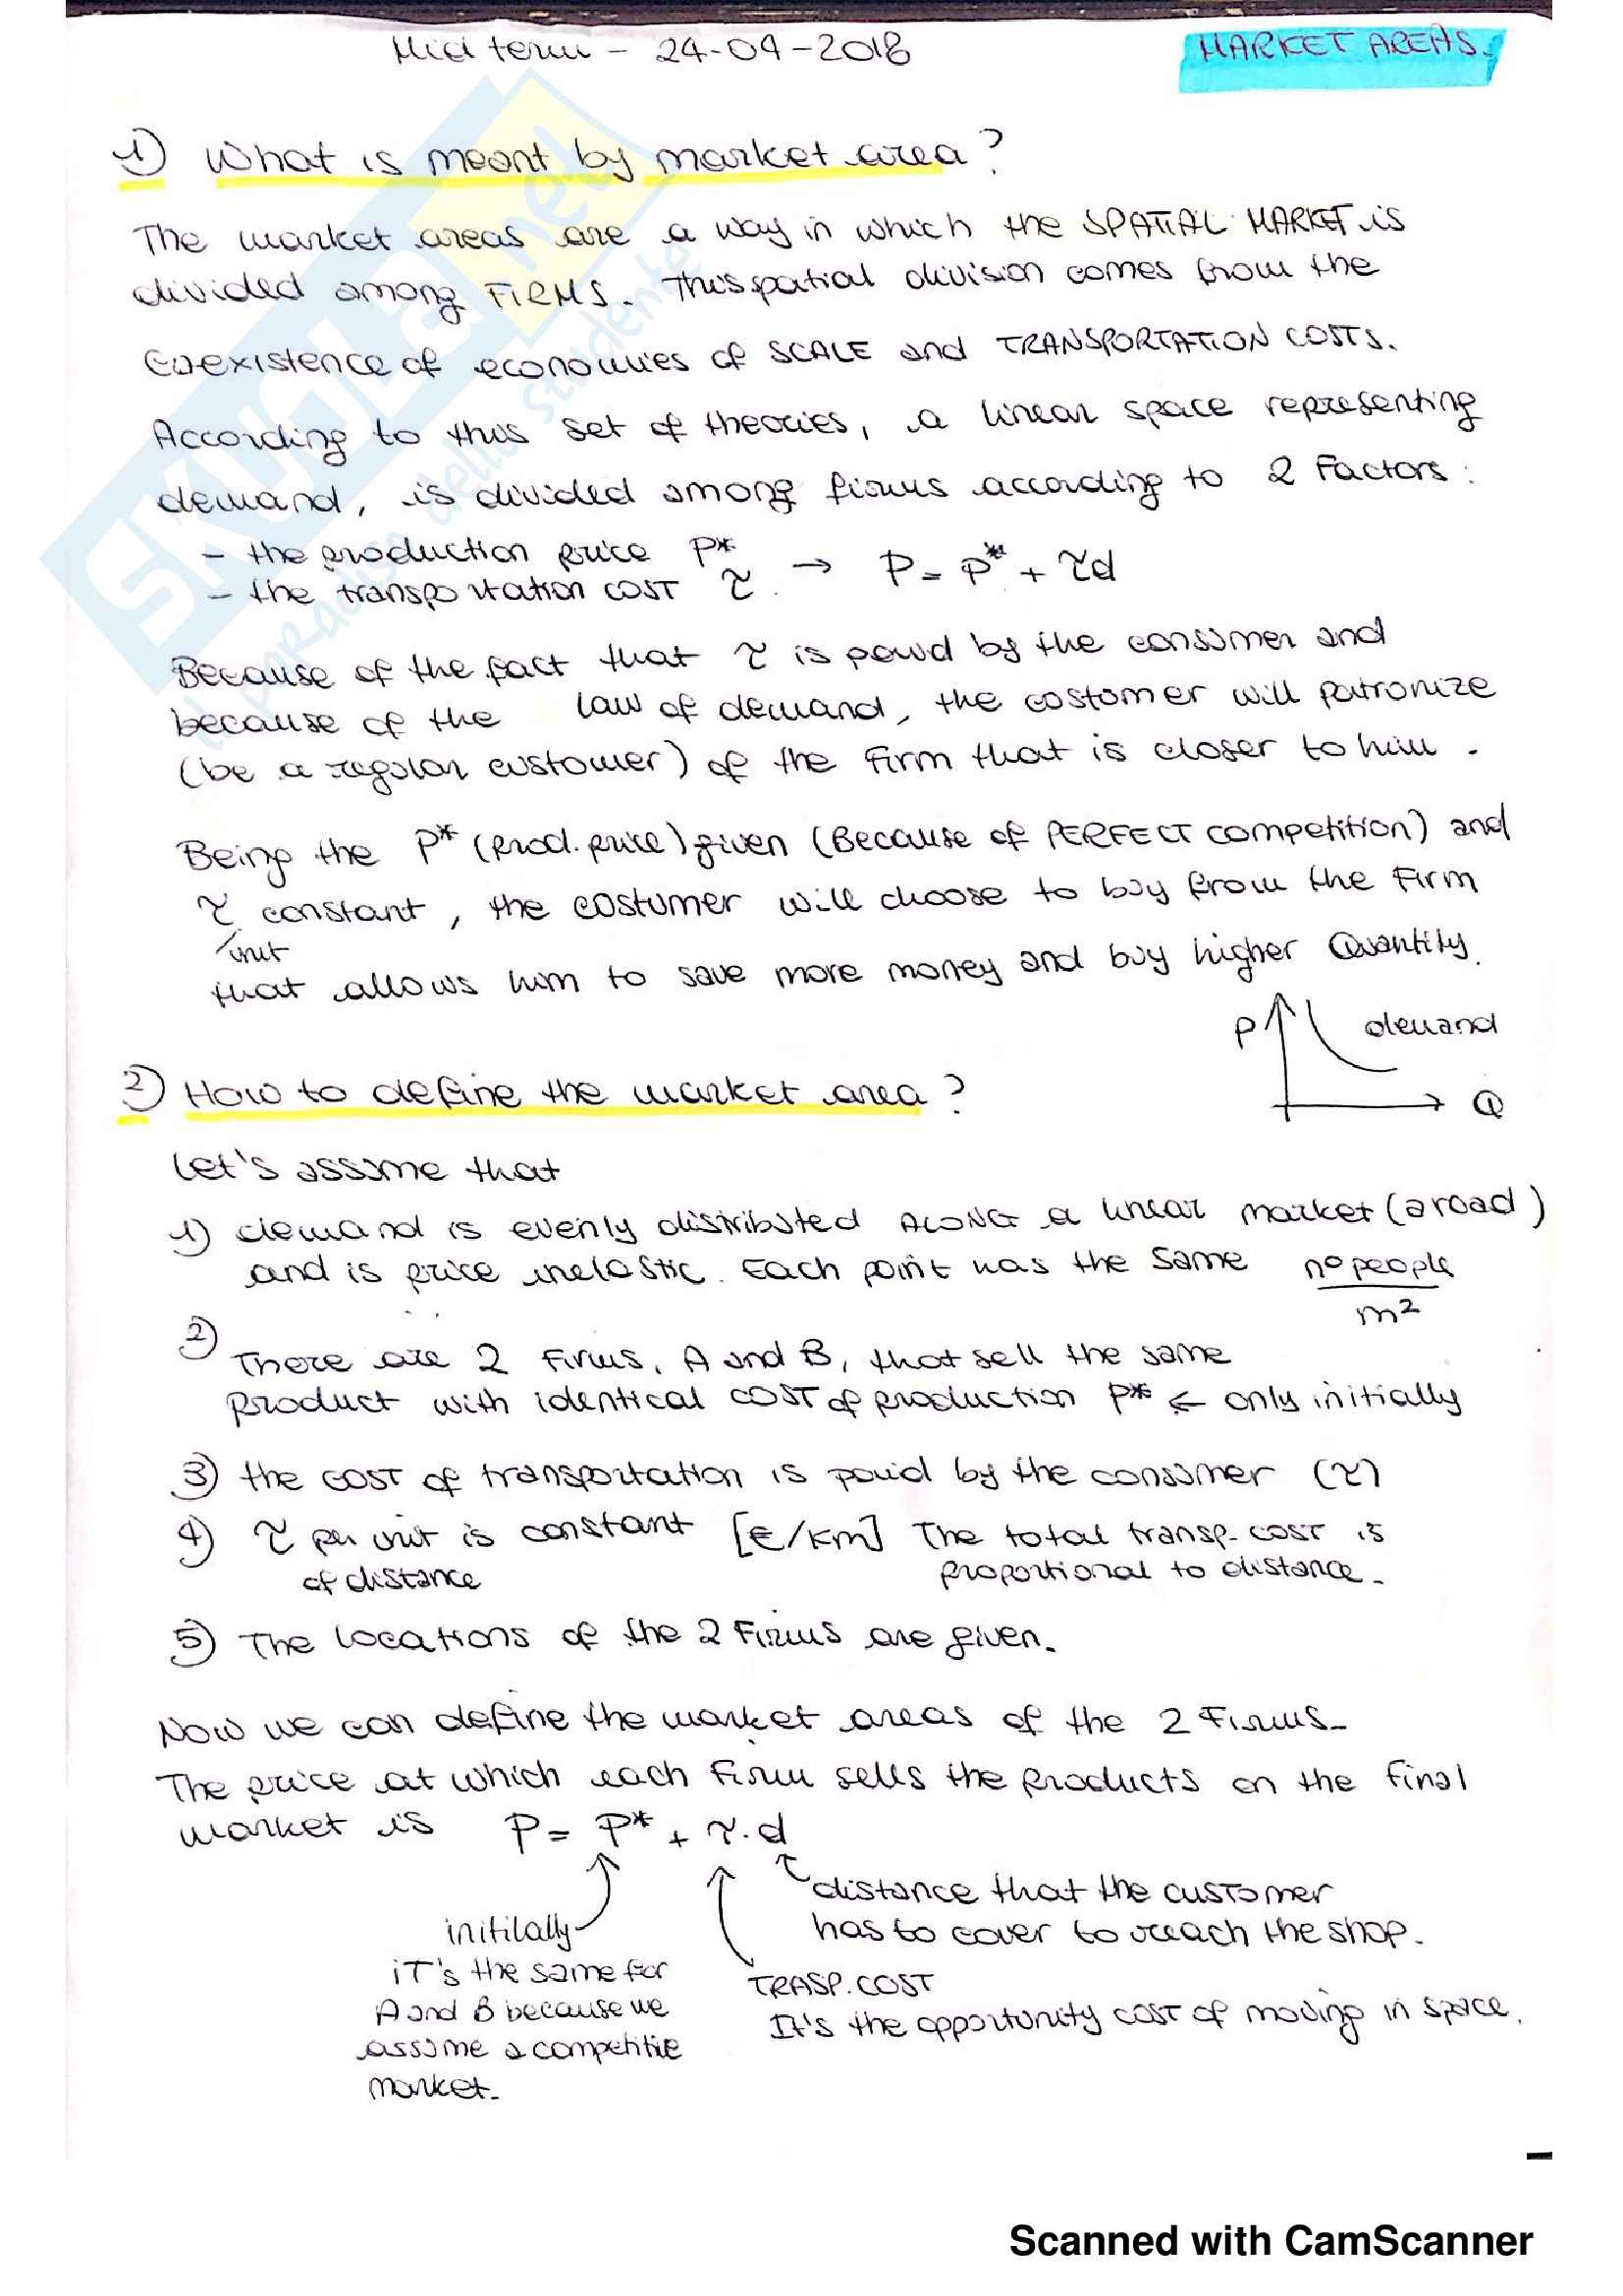 Mid term - 24-04-2018
MARKET AREAS.
1) What is meant by market area?
The market areas are a way in which the SPATIAL MARKET is
divided among FIRMS. This spatial division comes from the
Coexistence of economies of SCALE and TRANSPORTATION COSTS.
According to this set of theories, a linear space representing
demand, is divided among firms according to 2 Factors:
- the production price P*
- the transportation cost τ. → P = P* + τd
Because of the fact that τ is paid by the consumer and
because of the law of demand, the costomer will patronize
(be a regular customer) of the firm that is closer to him.
Being the P* (prod. price) given (Because of PERFECT competition) and
τ constant, the costumer will choose to buy from the firm
/unit
that allows him to save more money and buy higher Quantity.
P demand
Q
2) How to define the market area?
Let's assume that
1) demand is evenly distributed ALONG a linear market (a road)
and is price inelastic. Each point has the same n° people
m²
2) There are 2 firms, A and B, that sell the same
Product with identical COST of production P* ← only initially
3) the COST of transportation is paid by the consumer (τ)
4) τ per unit is constant [€/km] The total transp. cost is
of distance proportional to distance.
5) The locations of the 2 Firms are given.
Now we can define the market areas of the 2 Firms.
The price at which each firm sells the products on the final
market is P = P* + τ·d
distance that the customer
has to cover to reach the shop.
initilally
iT's the same for
A and B because we
assume a competitive
market.
TRASP. COST
It's the opportunity cost of moving in space.
SKUOLA.net
il paradiso dello studente
Scanned with CamScanner